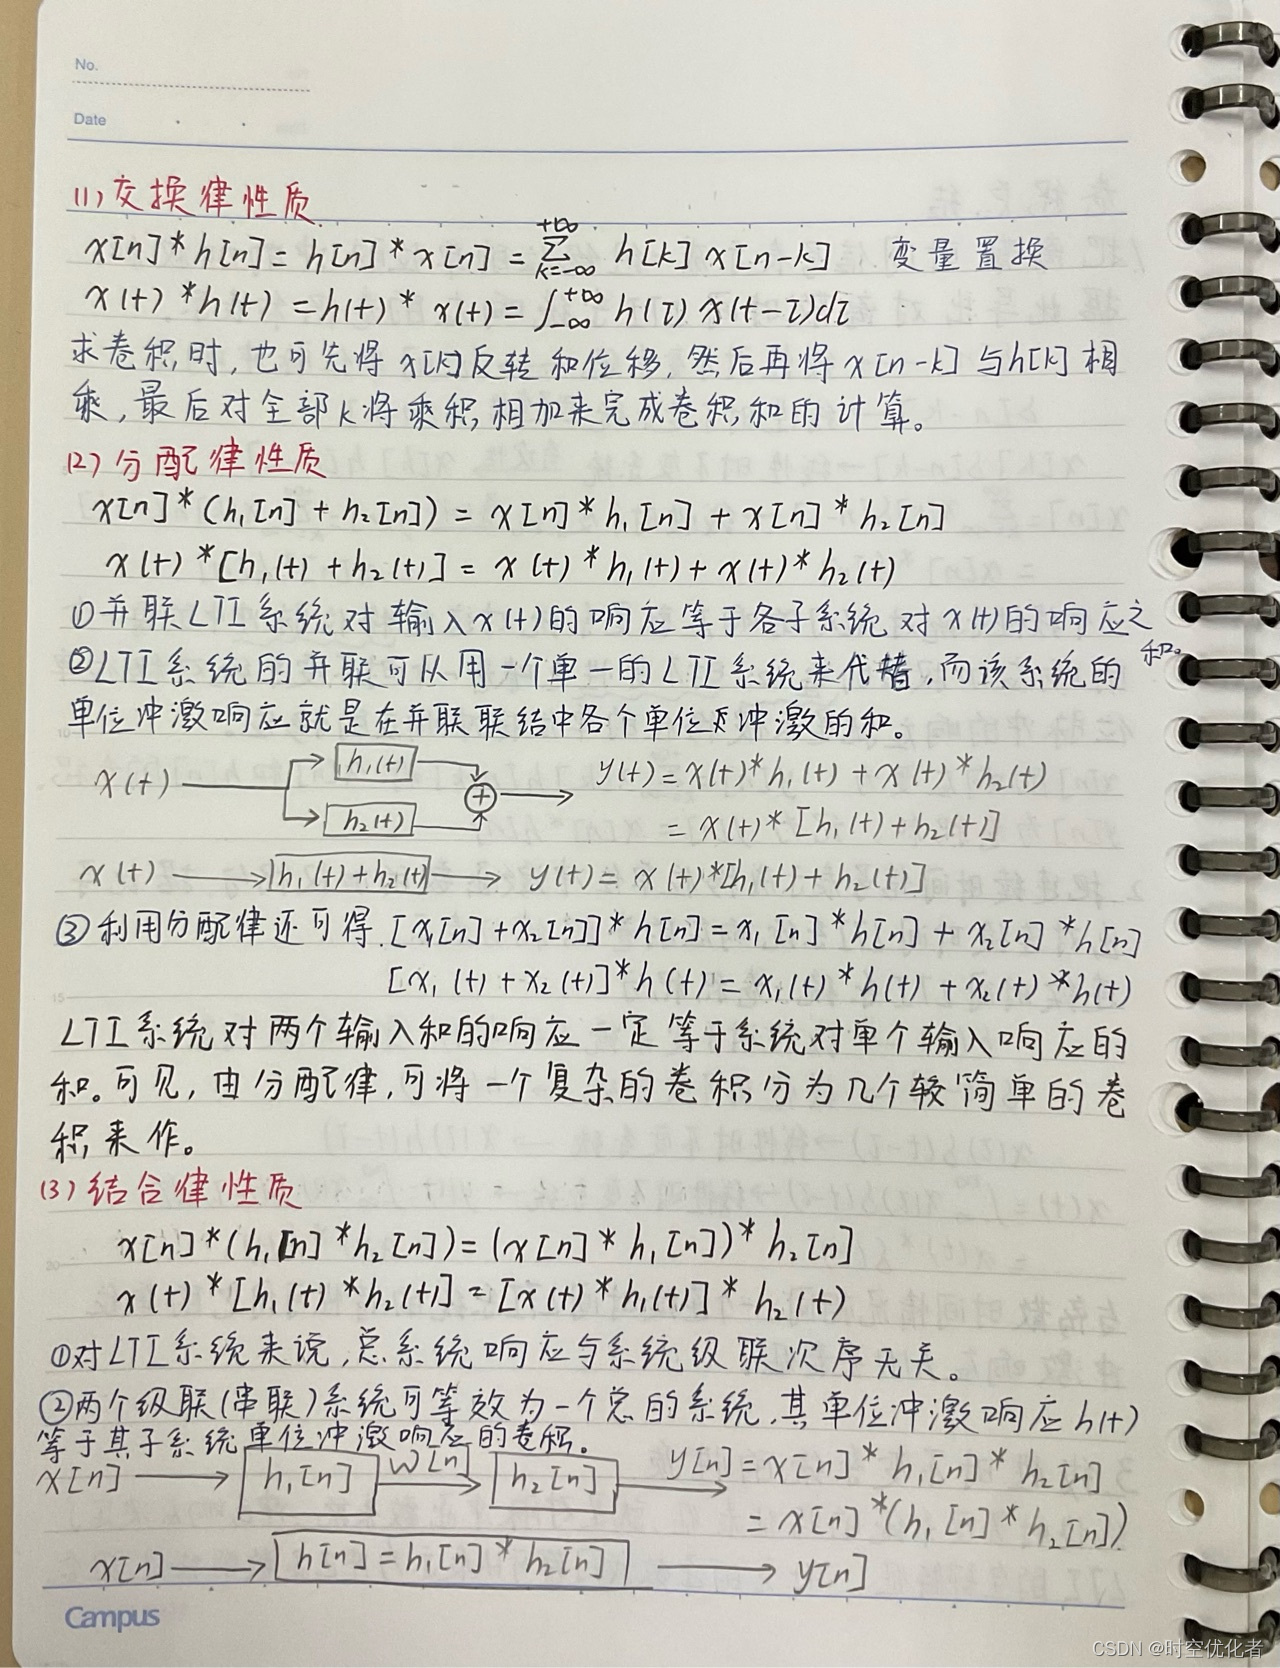 No.
Date
(1) 交换律性质
x[n]*h[n]=h[n]*x[n]=∑_{k=-∞}^{+∞} h[k] x[n-k] 变量置换
x(t)*h(t)=h(t)*x(t)=∫_{-∞}^{+∞} h(τ) x(t-τ)dτ
求卷积时,也可先将x[k]反转和位移,然后再将x[n-k]与h[k]相
乘,最后对全部k将乘积相加来完成卷积和的计算。
(2) 分配律性质
x[n]*(h₁[n]+h₂[n])=x[n]*h₁[n]+x[n]*h₂[n]
x(t)*[h₁(t)+h₂(t)]=x(t)*h₁(t)+x(t)*h₂(t)
①并联LTI系统对输入x(t)的响应等于各子系统对x(t)的响应之
和。
②LTI系统的并联可以用一个单一的LTI系统来代替,而该系统的
单位冲激响应就是在并联联结中各个单位冲激的和。
x(t) h₁(t) h₂(t) + y(t)=x(t)*h₁(t)+x(t)*h₂(t)
=x(t)*[h₁(t)+h₂(t)]
x(t) h₁(t)+h₂(t) y(t)=x(t)*[h₁(t)+h₂(t)]
③利用分配律还可得.[x₁[n]+x₂[n]]*h[n]=x₁[n]*h[n]+x₂[n]*h[n]
[x₁(t)+x₂(t)]*h(t)=x₁(t)*h(t)+x₂(t)*h(t)
LTI系统对两个输入和的响应一定等于系统对单个输入响应的
和。可见,由分配律,可将一个复杂的卷积分为几个较简单的卷
积来作。
(3) 结合律性质
x[n]*(h₁[n]*h₂[n])=(x[n]*h₁[n])*h₂[n]
x(t)*[h₁(t)*h₂(t)]=[x(t)*h₁(t)]*h₂(t)
①对LTI系统来说,总系统响应与系统级联次序无关。
②两个级联(串联)系统可等效为一个总的系统,其单位冲激响应h(t)
等于其子系统单位冲激响应的卷积。
x[n] h₁[n] w[n] h₂[n] y[n]=x[n]*h₁[n]*h₂[n]
=x[n]*(h₁[n]*h₂[n])
x[n] h[n]=h₁[n]*h₂[n] y[n]
Campus
CSDN @时空优化者